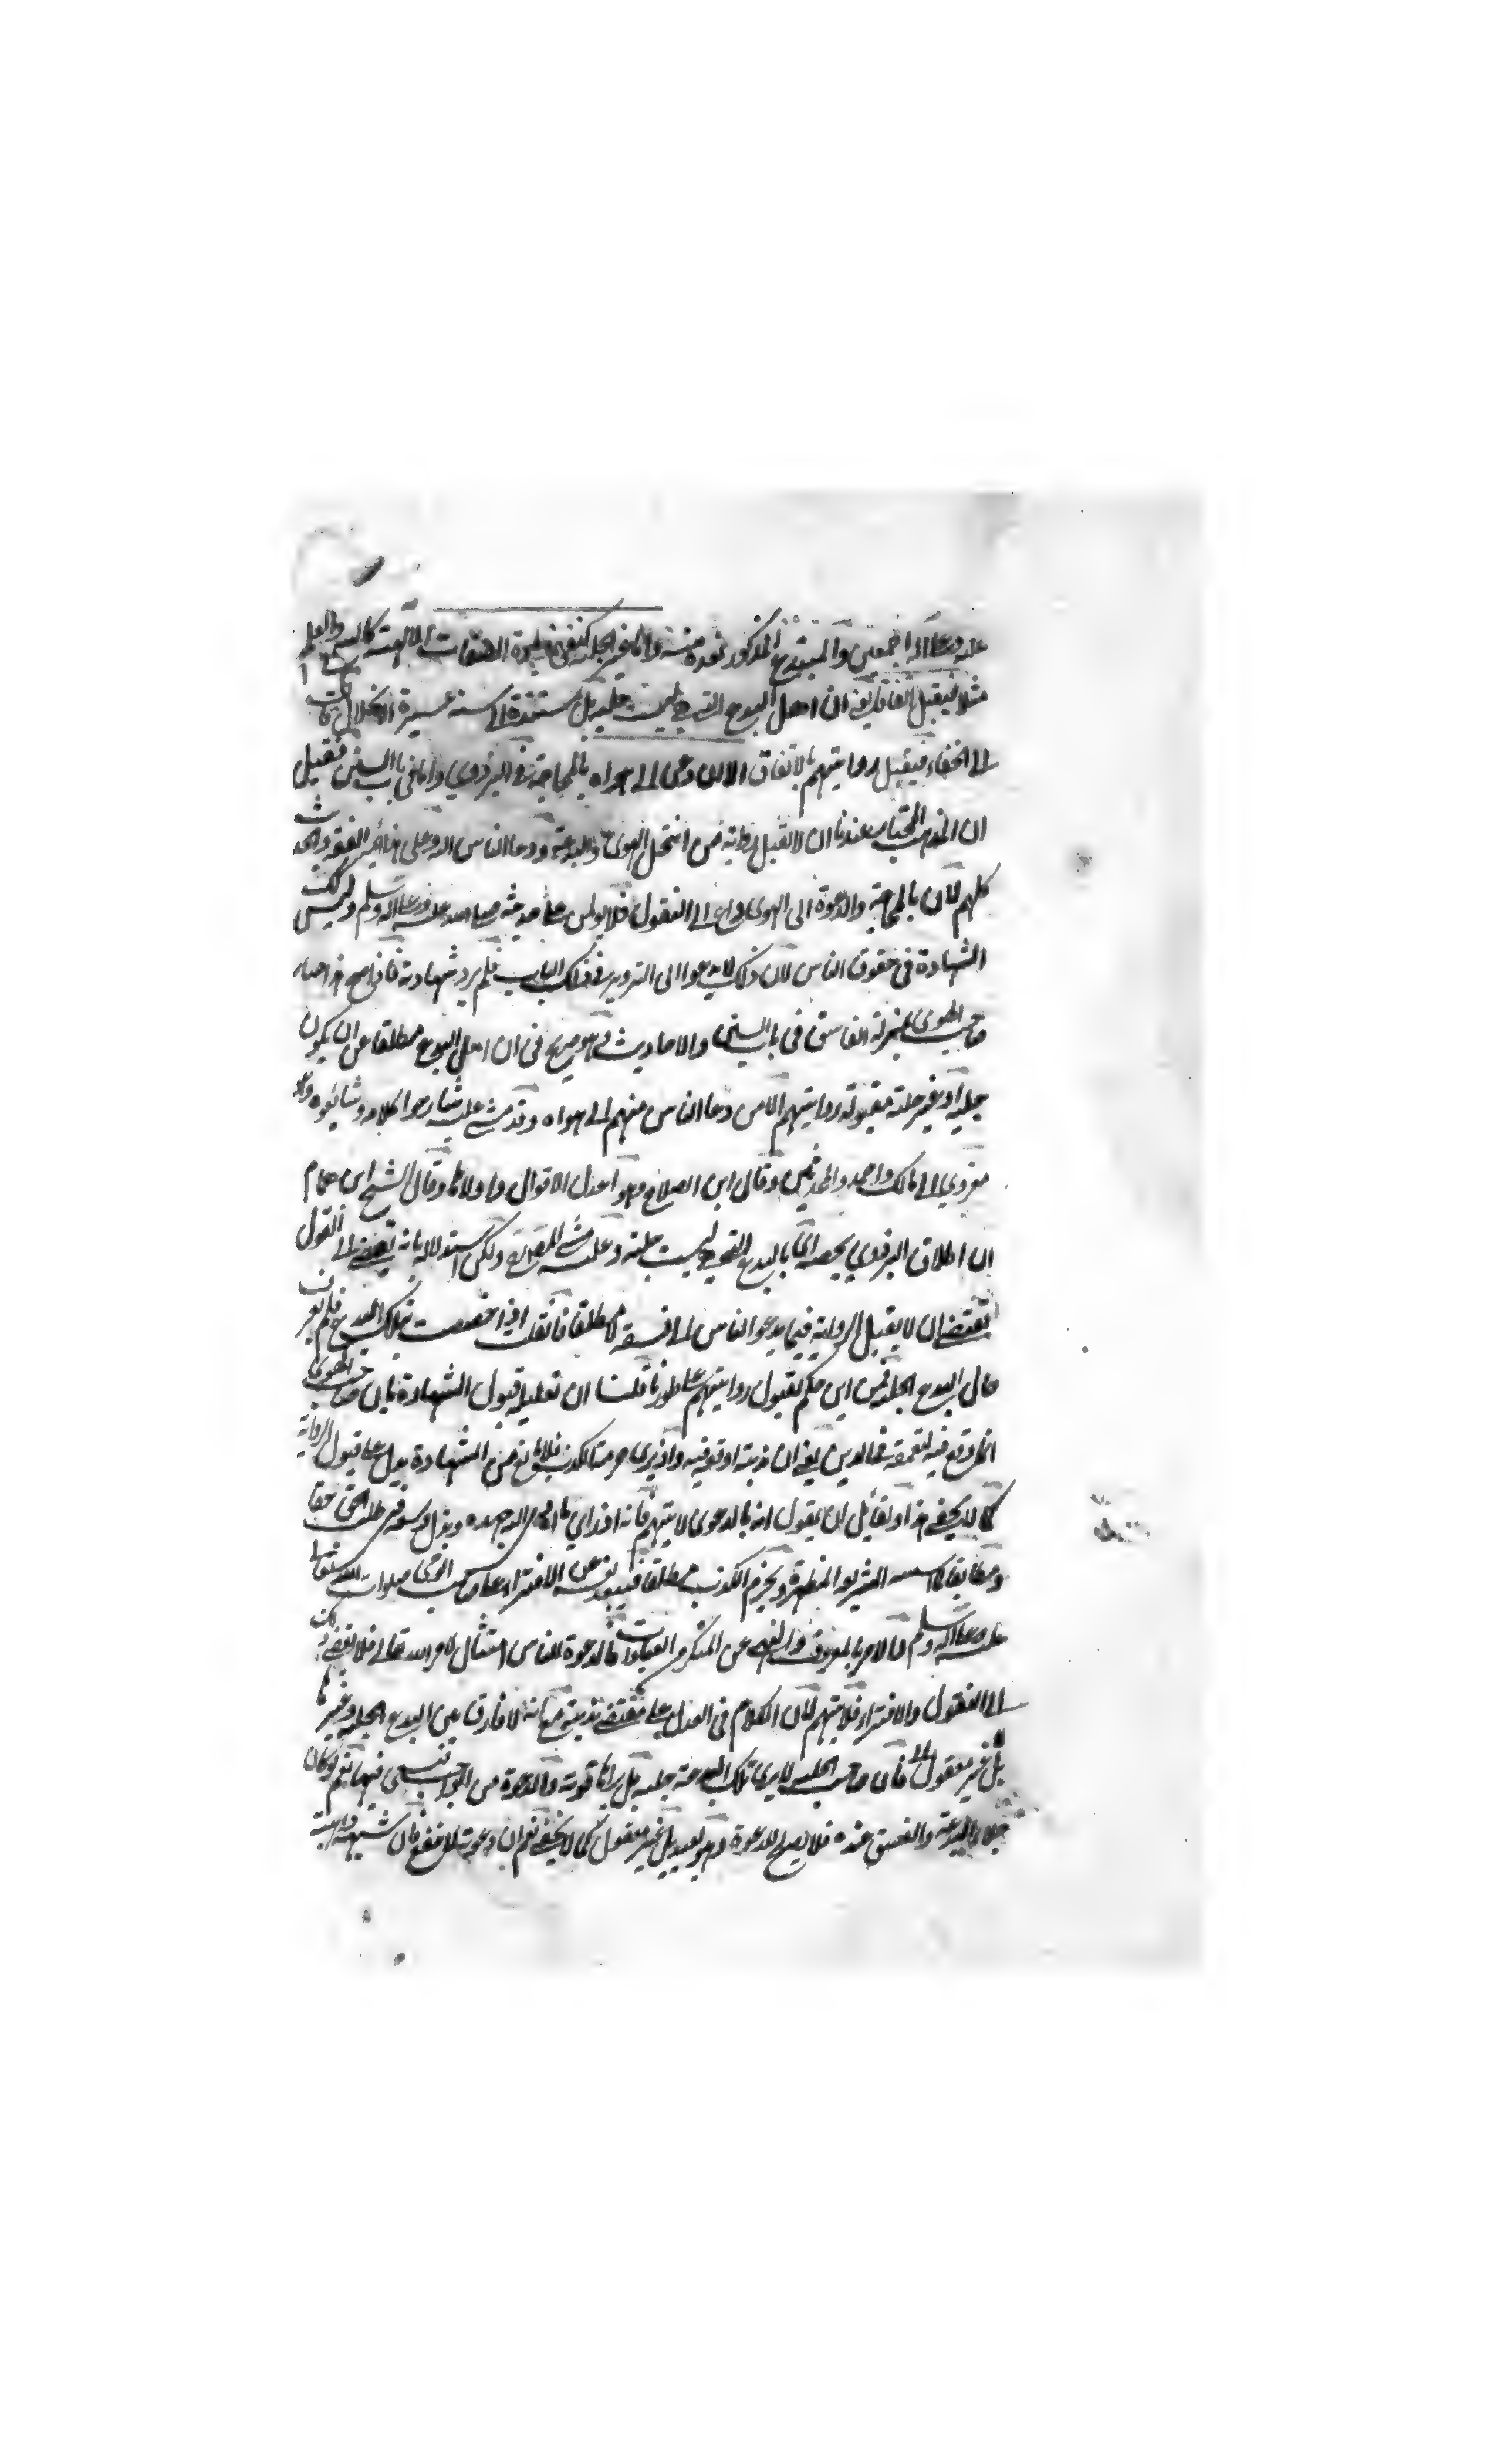 عليه وعلى آله اجمعين والمبتدع المذكور نعوذ منه واما غير الجلية كنفي زيادة الصفات الالهية كالسمع والعلم
مثلا فيقبل اتفاقا يعني ان اهل البدع التي ليست جلية بل مستندة الى سنة عسيرة الانحلال
الى الخفاء فيقبل روايتهم بالاتفاق الا ان دعى الى هواه بالمحاجة وفي البزدوي واما في باب السنن فقيل
ان المذهب المختار عندنا ان لا تقبل رواية من انتحل الهوى والبدعة ودعا الناس اليه وعلى هذا أئمة الفقه والحديث
كلهم لان بالمحاجة والدعوة الى الهوى داع الى التقول فلا يؤتمن على حديثه صلى الله عليه وعلى آله وسلم وليس كذلك
الشهادة في حقوق الناس لان ذلك لا يدعوا الى التزوير في ذلك الباب فلم يرد شهادته فاذا صح هذا صار
صاحب الهوى بمنزلة الفاسق في باب السنن والاحاديث وهو صريح في ان اهل البدع مطلقا من ان يكون
جلية او غير جلية مقبولة روايتهم الا من دعا الناس منهم الى هواه وقد مشى عليه شارحوا كلامه وشائعوه وهو
معزوي الى مالك واحمد والمحدثين وقال ابن الصلاح وهو اعدل الاقوال واولاها وقال الشيخ ابن همام
ان اطلاق البزدوي يخصه اي بالبدع التي ليست جلية وعليه مشى المصنف ولكن استدلاله بانه يفضي الى القول
يقتضي ان لا يقبل الرواية فيما يدعو الناس الى فسقه لا مطلقا فان قلت اذا خصصت بتلك البدع فلم يعرف
حال البدع الجلية فمن اين حكم بقبول روايتهم على طورنا قلنا ان تعليله قبول الشهادة بان صاحب الهوى
انما وقع فيه لتعمقه في الدين يعني ان ديته اوقعه فيه واذ يرى حرمة الكذب فلا مانع من الشهادة يدل على قبول الرواية
كما لا يخفى هذا ولقائل ان يقول انه بالدعوى لا يتهم فانه اذا رأى ما ادى اليه جهده وبذل وسعه في طلب الحق حقا
ومطابقا لما اسسه الشريعة المطهرة ويحرم الكذب مطلقا فيبعد عن الافتراء على صاحب الوحي صلوات الله تعالى
عليه وعلى آله وسلم فالامر بالمعروف والنهي عن المنكر من العبادات فالدعوة للناس امتثال لامر الله تعالى فلا يفضي ذلك
الى التقول والافتراء فلا يتهم لان الكلام في العدل على مقتضى تدينه مع انه لا فارق بين البدع الجلية وغيرها
بل غير معقول فان صاحب الجلية لا يرى تلك البدعة جلية بل يراها قوية والدعوة من الواجب فيها نعم لو كان
جلاء البدعة والفسق عنده فلا يصلح للدعوة وهو بعيد بل غير معقول كما لا يخفى نعم ان دعوته للاخفاء فان شبهته